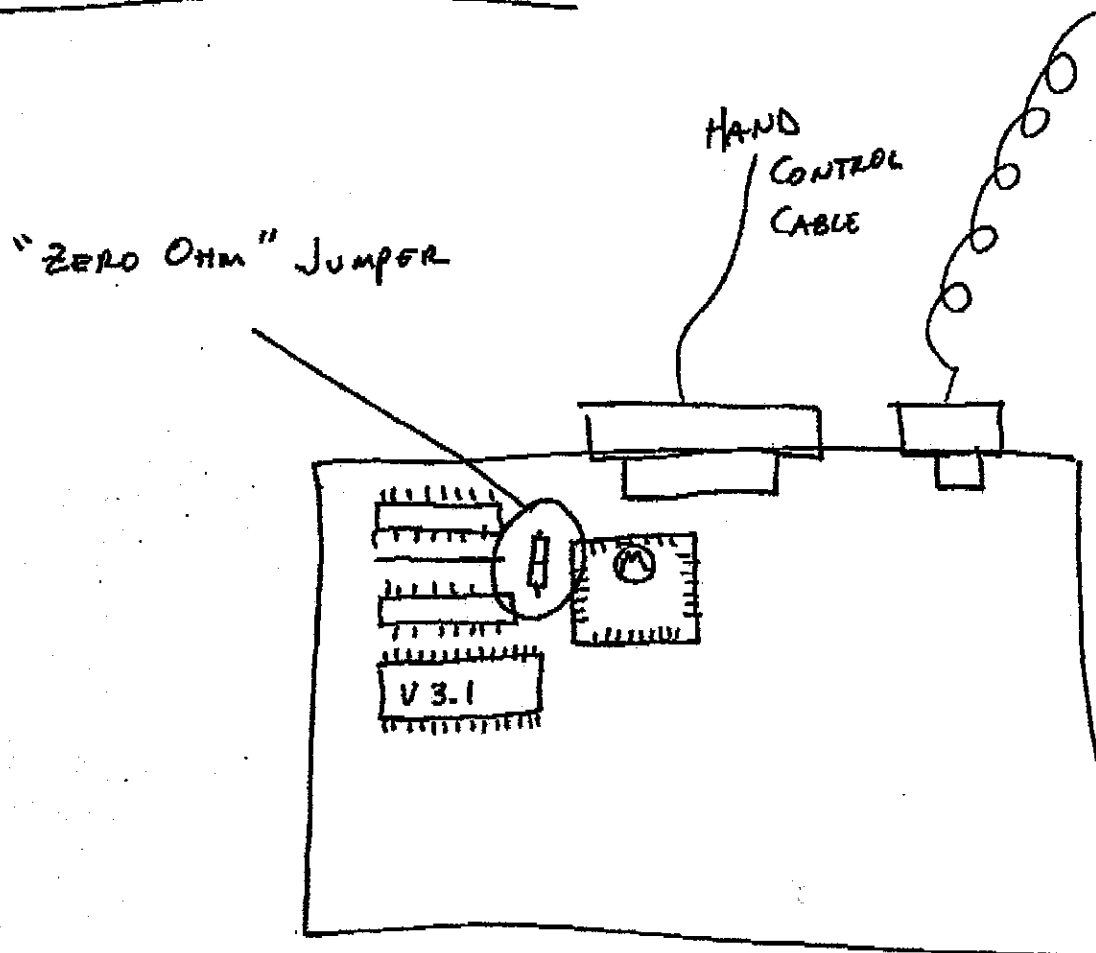 HAND
CONTROL
CABLE
"ZERO OHM" JUMPER
M
V 3.1